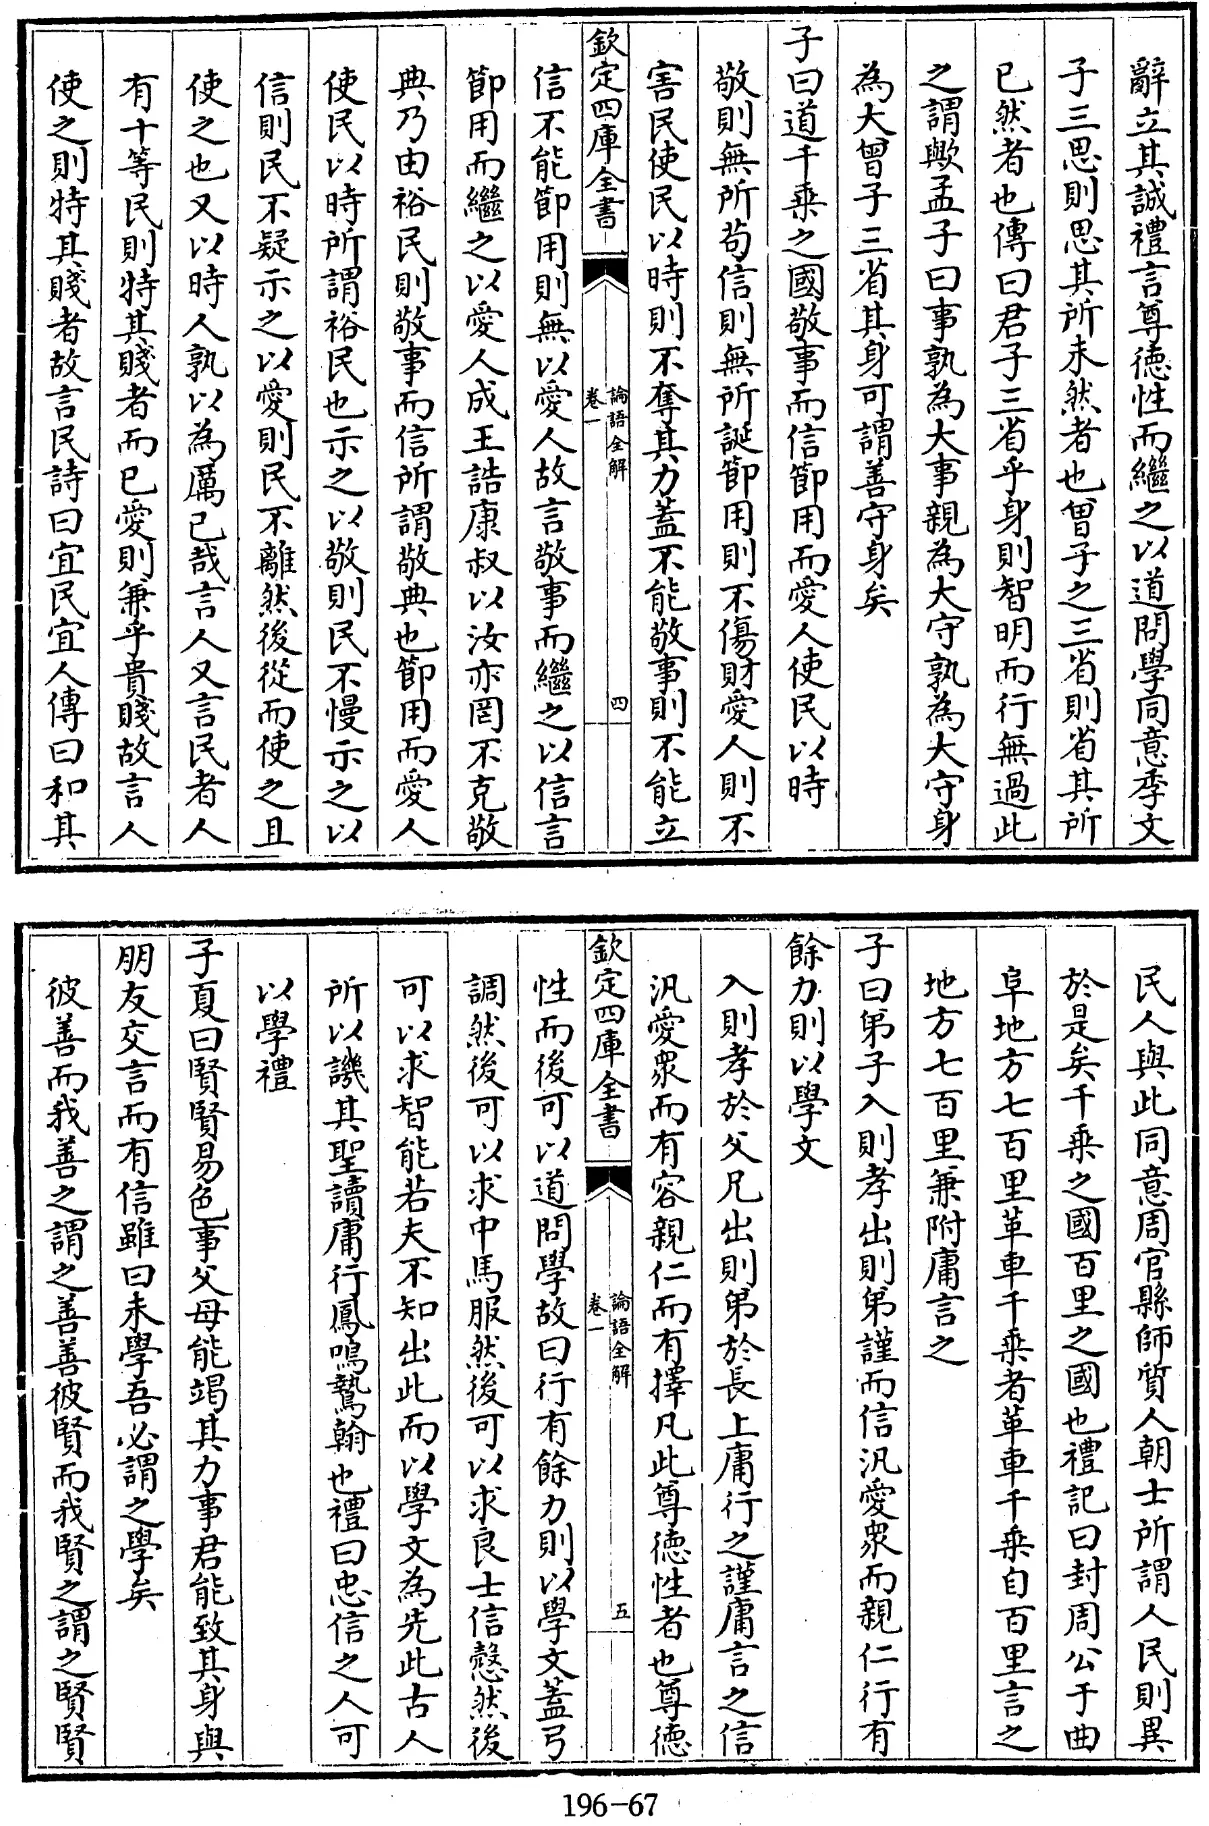 辭立其誠禮言尊徳性而繼之以道問學同意季文
子三思則思其所未然者也曽子之三省則省其所
已然者也傳曰君子三省乎身則智明而行無過此
之謂歟孟子曰事孰為大事親為大守孰為大守身
為大曽子三省其身可謂善守身矣
子曰道千乗之國敬事而信節用而愛人使民以時
敬則無所茍信則無所誕節用則不傷財愛人則不
害民使民以時則不奪其力蓋不能敬事則不能立
欽定四庫全書
論語全解
卷一
四
信不能節用則無以愛人故言敬事而繼之以信言
節用而繼之以愛人成王誥康叔以汝亦罔不克敬
典乃由裕民則敬事而信所謂敬典也節用而愛人
使民以時所謂裕民也示之以敬則民不慢示之以
信則民不疑示之以愛則民不離然後從而使之且
使之也又以時人孰以為厲已哉言人又言民者人
有十等民則特其賤者而已愛則兼乎貴賤故言人
使之則特其賤者故言民詩曰宜民宜人傳曰和其
民人與此同意周官縣師質人朝士所謂人民則異
於是矣千乗之國百里之國也禮記曰封周公于曲
阜地方七百里革車千乗者革車千乗自百里言之
地方七百里兼附庸言之
子曰弟子入則孝出則弟謹而信汎愛衆而親仁行有
餘力則以學文
入則孝於父兄出則弟於長上庸行之謹庸言之信
汎愛衆而有容親仁而有擇凡此尊徳性者也尊徳
欽定四庫全書
論語全解
卷一
五
性而後可以道問學故曰行有餘力則以學文蓋弓
調然後可以求中馬服然後可以求良士信慤然後
可以求智能若夫不知出此而以學文為先此古人
所以譏其聖讀庸行鳳鳴鷙翰也禮曰忠信之人可
以學禮
子夏曰賢賢易色事父母能竭其力事君能致其身與
朋友交言而有信雖曰未學吾必謂之學矣
彼善而我善之謂之善善彼賢而我賢之謂之賢賢
196-67